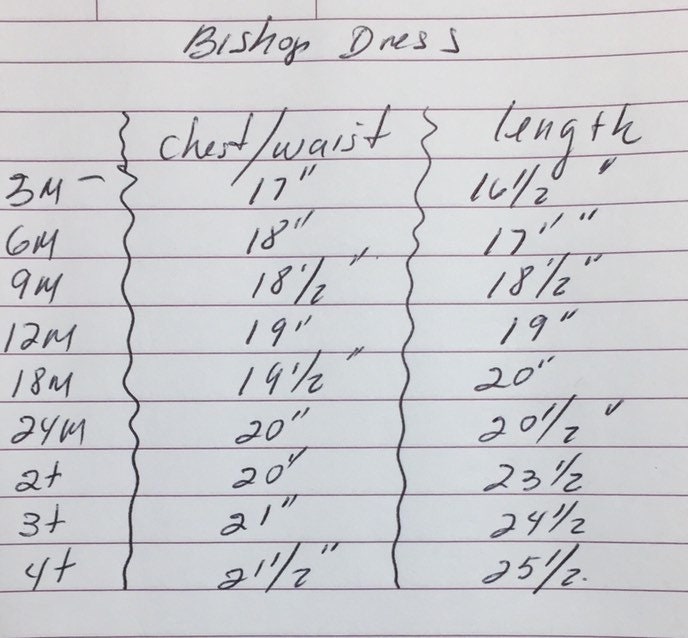 Bishop Dress
chest/waist length
3M - 17" 16 1/2 "
6M 18" 17" "
9M 18 1/2 " 18 1/2 "
12M 19" 19"
18M 19 1/2 " 20"
24M 20" 20 1/2 "
2t 20" 23 1/2
3t 21" 24 1/2
4t 21 1/2 " 25 1/2.